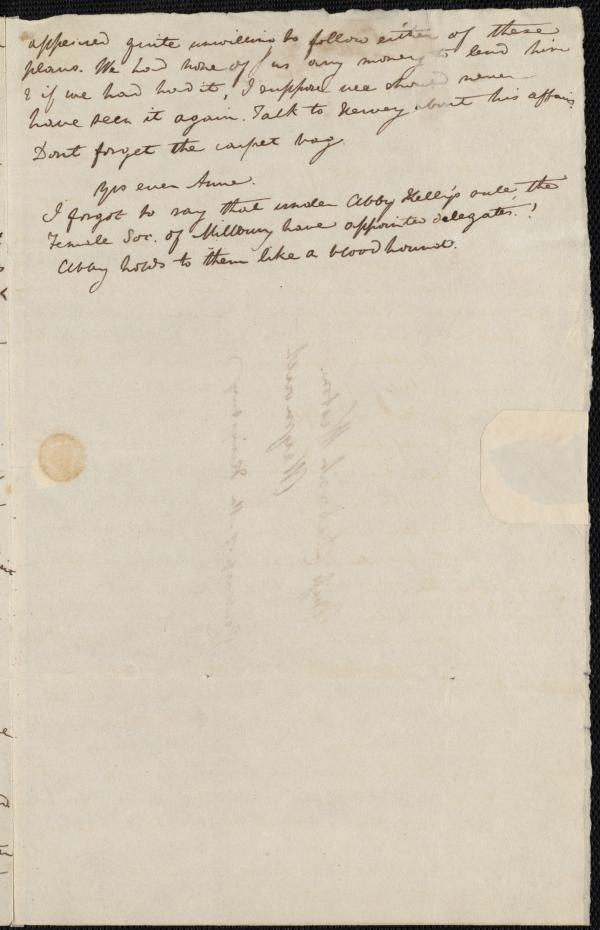 appeared quite unwilling to follow either of these
plans. We had none of us any money to lend him
& if we had had it, I suppose we should never
have seen it again. Talk to Hervey about his affairs.
Dont forget the carpet bag.
Yrs ever Anne.
I forgot to say that under Abby Kelly's rule the
Female Soc. of Millbury have appointed delegates.!
Abby holds to them like a bloodhound.
Weymouth
Weston